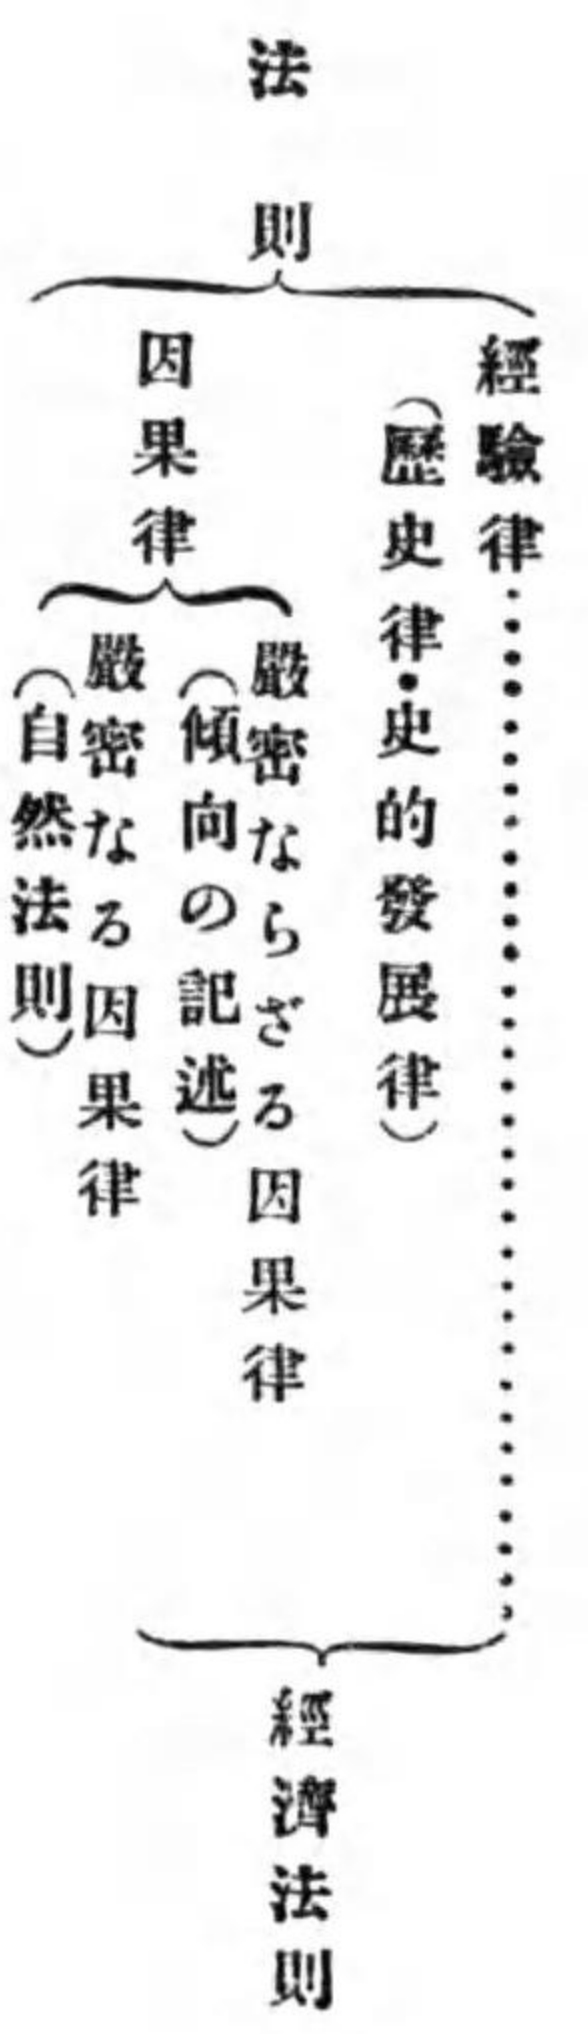 法則
經驗律
（歷史律・史的發展律）
因果律
嚴密ならざる因果律
（傾向の記述）
嚴密なる因果律
（自然法則）
經濟法則